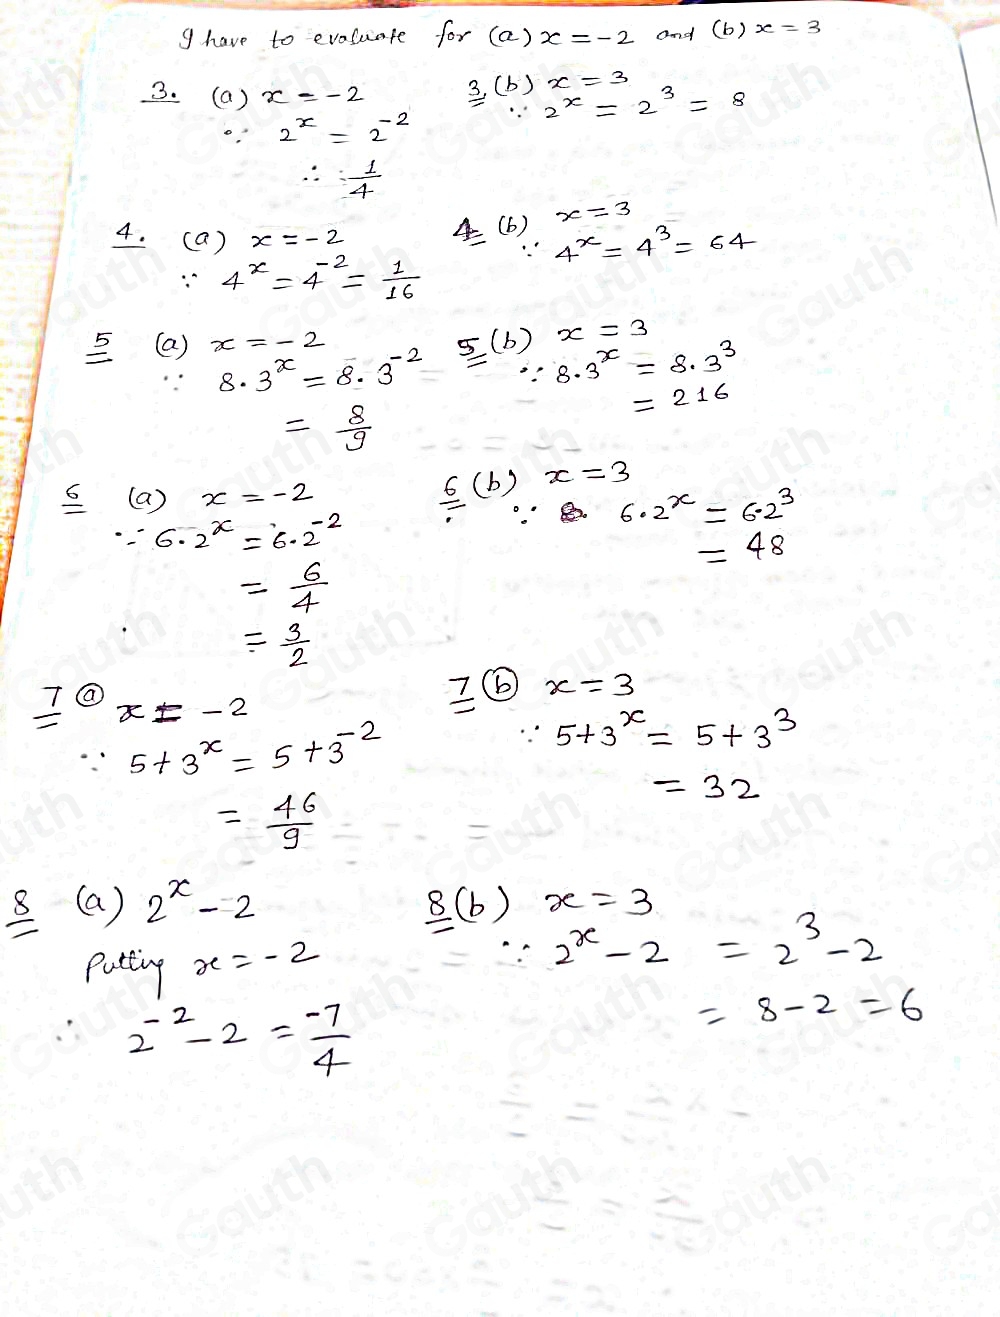 I have to evaluate for (a) x = -2 and (b) x = 3
3. (a) x = -2
∵ 2^x = 2^-2
∴ 1/4
3 (b) x = 3
∵ 2^x = 2^3 = 8
4. (a) x = -2
∵ 4^x = 4^-2 = 1/16
4 (b) x = 3
∵ 4^x = 4^3 = 64
5 (a) x = -2
∵ 8·3^x = 8·3^-2
= 8/9
5 (b) x = 3
∵ 8·3^x = 8·3^3
= 216
6 (a) x = -2
∵ 6·2^x = 6·2^-2
= 6/4
= 3/2
6 (b) x = 3
∵ 6·2^x = 6·2^3
= 48
7 (a) x = -2
∵ 5+3^x = 5+3^-2
= 46/9
7 (b) x = 3
∵ 5+3^x = 5+3^3
= 32
8 (a) 2^x - 2
Putting x = -2
∴ 2^-2 - 2 = -7/4
8 (b) x = 3
∵ 2^x - 2 = 2^3 - 2
= 8 - 2 = 6
Gauth